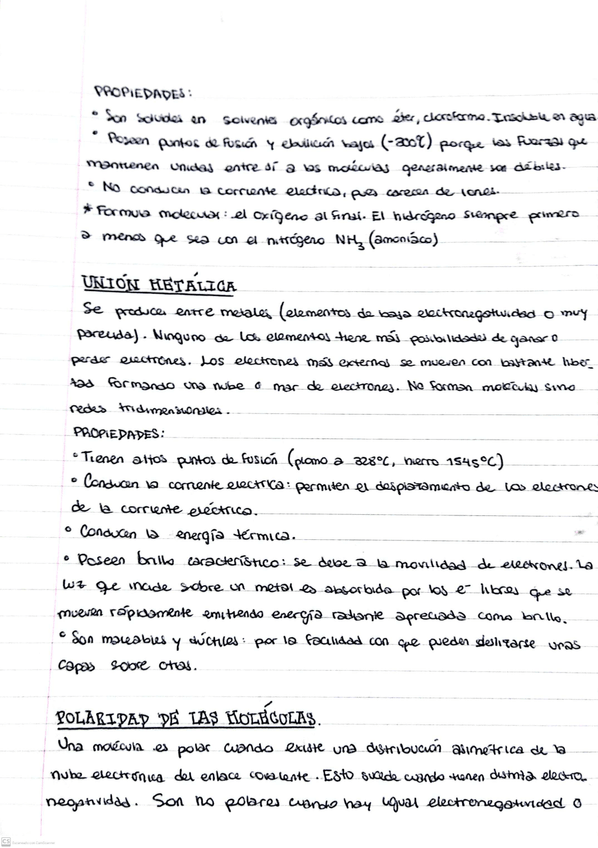 PROPIEDADES:
• Son solubles en solventes orgánicos como éter, cloroformo. Insoluble en agua
• Poseen puntos de fusión y ebullición bajos (-200°C) porque las fuerzas que
mantienen unidas entre sí a las moléculas generalmente son débiles.
• No conducen la corriente electrica, pues carecen de iones.
* Formula molecular: el oxígeno al final. El hidrógeno siempre primero
a menos que sea con el nitrógeno NH₃ (amoníaco)
UNIÓN METÁLICA
Se produce entre metales (elementos de baja electronegatividad o muy
parecida). Ninguno de los elementos tiene más posibilidades de ganar o
perder electrones. Los electrones más externos se mueven con bastante liber-
tad formando una nube o mar de electrones. No forman moléculas sino
redes tridimensionales.
PROPIEDADES:
• Tienen altos puntos de fusión (plomo a 328°C, hierro 1545°C)
• Conducen la corriente electrica: permiten el desplazamiento de los electrones
de la corriente eléctrica.
• Conducen la energía térmica.
• Poseen brillo característico: se debe a la movilidad de electrones. La
luz qe incide sobre un metal es absorbida por los e⁻ libres que se
mueven rápidamente emitiendo energía radiante apreciada como brillo.
• Son maleables y dúctiles: por la facilidad con que pueden deslizarse unas
capas sobre otras.
POLARIDAD DE LAS MOLÉCULAS.
Una molécula es polar cuando existe una distribución asimétrica de la
nube electrónica del enlace covalente. Esto sucede cuando tienen distinta electro-
negatividad. Son no polares cuando hay igual electronegatividad o
CS